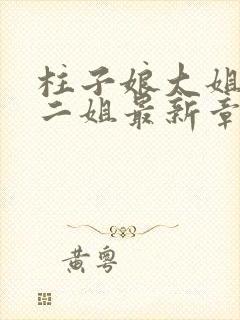 柱子娘大姐
二姐最新章
黄粤